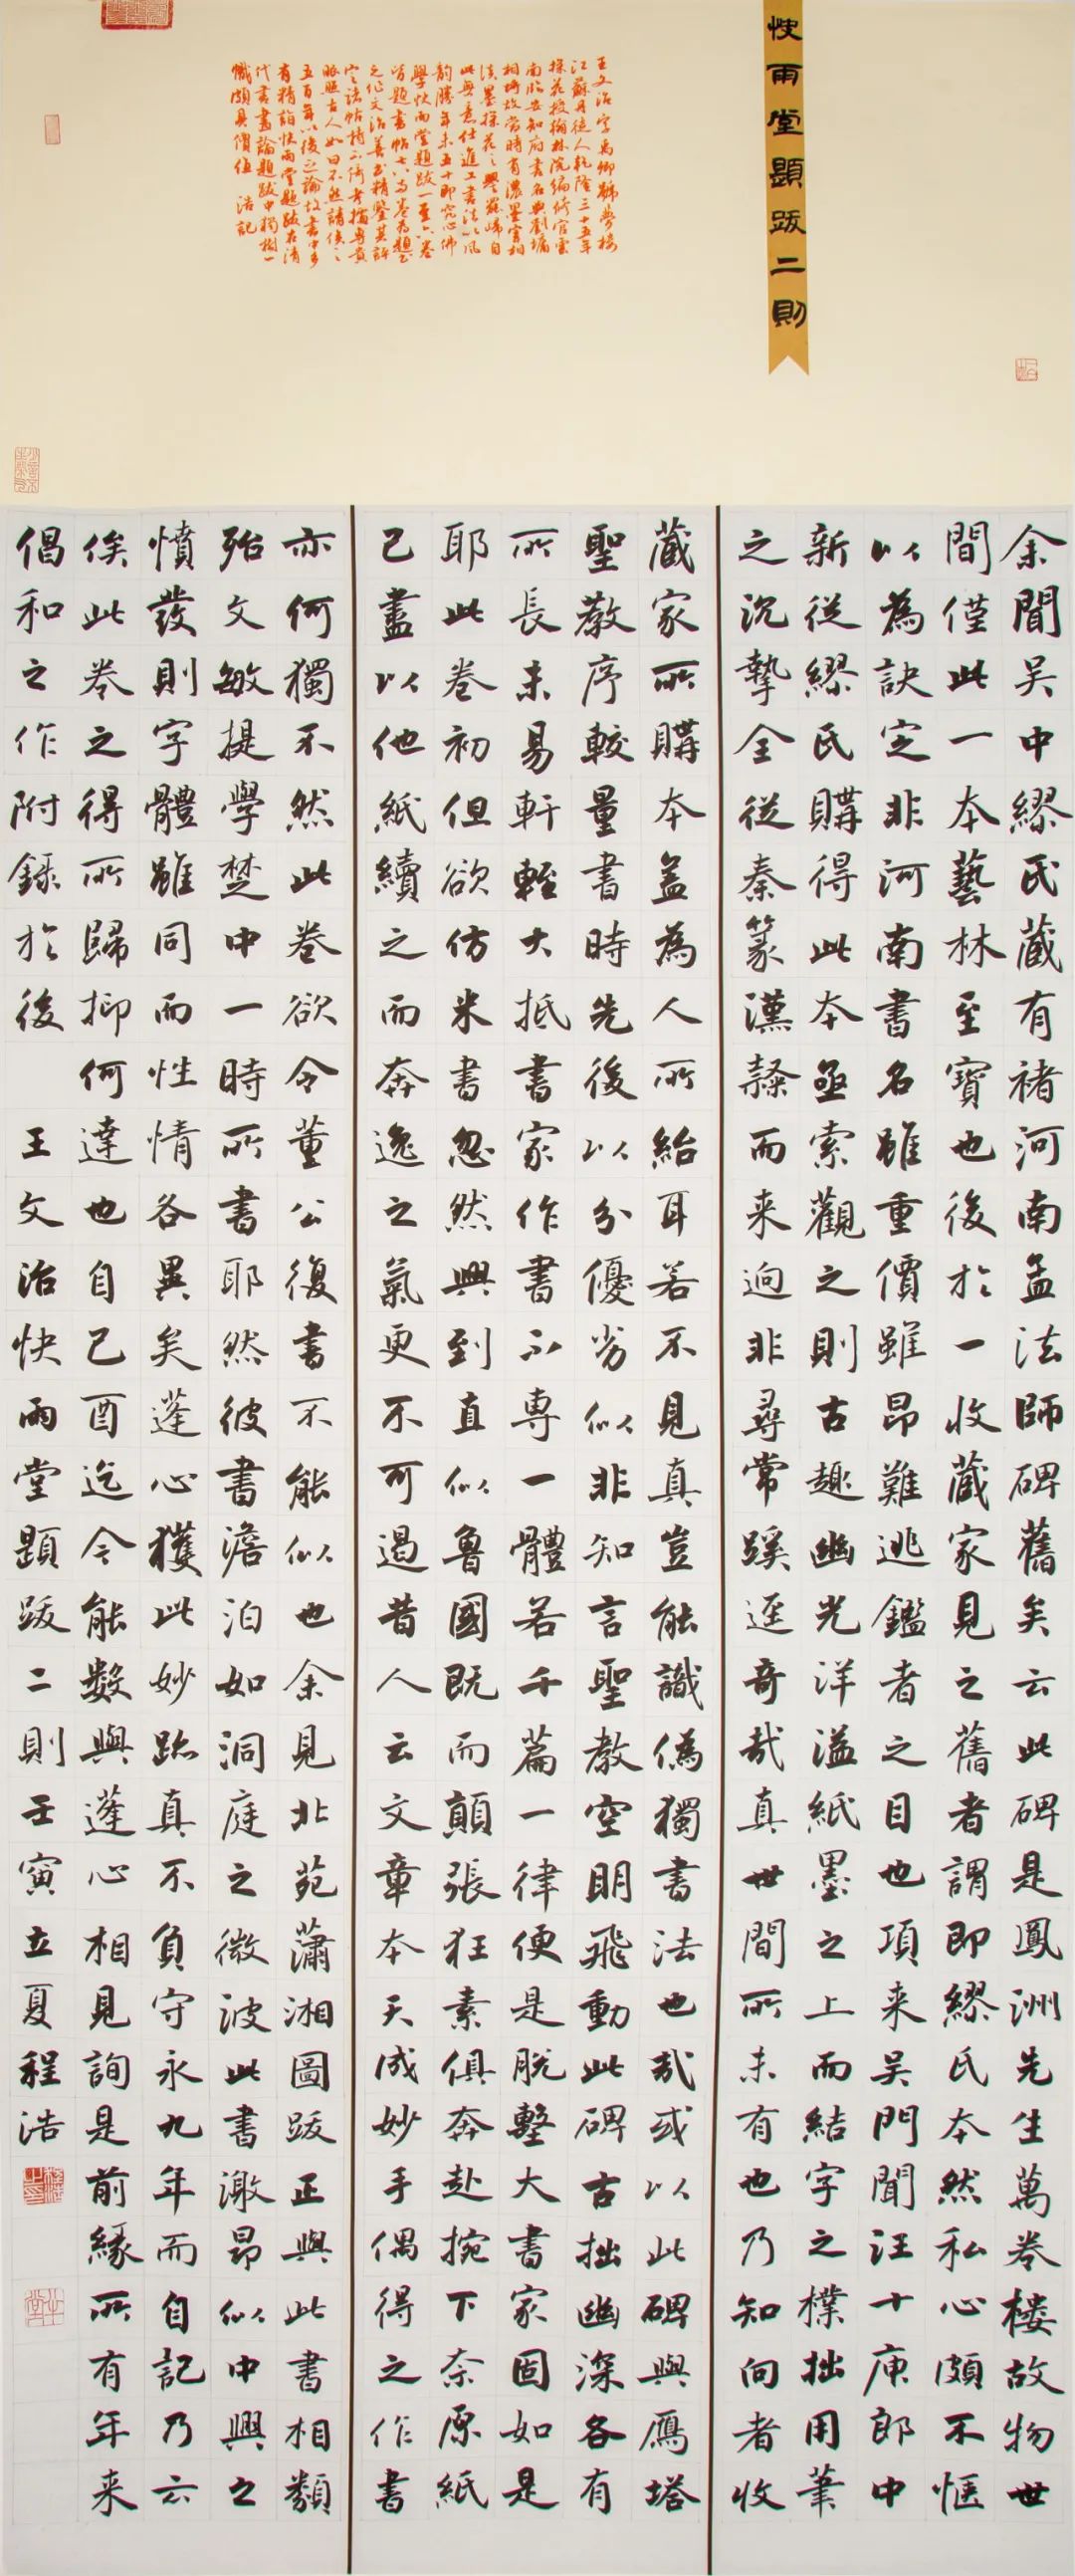 快雨堂題跋二則
王文治字禹卿號夢樓
江蘇丹徒人乾隆三十五年
探花授翰林院編修官雲
南臨安知府書名與劉墉
相埒故當時有濃墨宰相
淡墨探花之譽罷歸自
此無意仕進工書法以風
韵勝年未五十即究心佛
學快雨堂題跋一至六卷
皆題書帖七八兩卷為題畫
之作文治善書精鑒其評
定法帖持不倚考據專貴
眼照古人如曰不然請俟之
五百年以後之論故書中多
有精詣快雨堂題跋在清
代書畫論題跋中獨樹一
幟頗具價值 浩記
余聞吴中繆氏藏有褚河南孟法師碑舊矣云此碑是鳳洲先生萬卷樓故物世
間僅此一本藝林至寶也後於一收藏家見之舊者謂即繆氏本然私心頗不愜
以為訣定非河南書名雖重價雖昂難逃鑑者之目也項来吴門聞汪十庚郎中
新從繆氏購得此本亟索觀之則古趣幽光洋溢紙墨之上而結字之樸拙用筆
之沉摯全從秦篆漢隸而来迥非尋常蹊逕奇哉真世間所未有也乃知向者收
藏家所購本盖為人所紿耳若不見真豈能識偽獨書法也哉或以此碑與鴈塔
聖教序較量書時先後以分優劣似非知言聖教空明飛動此碑古拙幽深各有
所長未易軒輊大抵書家作書不專一體若千篇一律便是脱墼大書家固如是
耶此卷初但欲仿米書忽然興到直似魯國既而顛張狂素俱奔赴捥下奈原紙
已盡以他紙續之而奔逸之氣更不可遏昔人云文章本天成妙手偶得之作書
亦何獨不然此卷欲令董公復書不能似也余見北苑瀟湘圖跋正與此書相類
殆文敏提學楚中一時所書耶然彼書澹泊如洞庭之微波此書激昂似中興之
憤發則字體雖同而性情各異矣蓬心獲此妙跡真不負守永九年而自記乃云
俟此卷之得所歸抑何達也自己酉迄今能數與蓬心相見詢是前緣所有年来
倡和之作附録於後 王文治快雨堂題跋二則壬寅立夏程浩